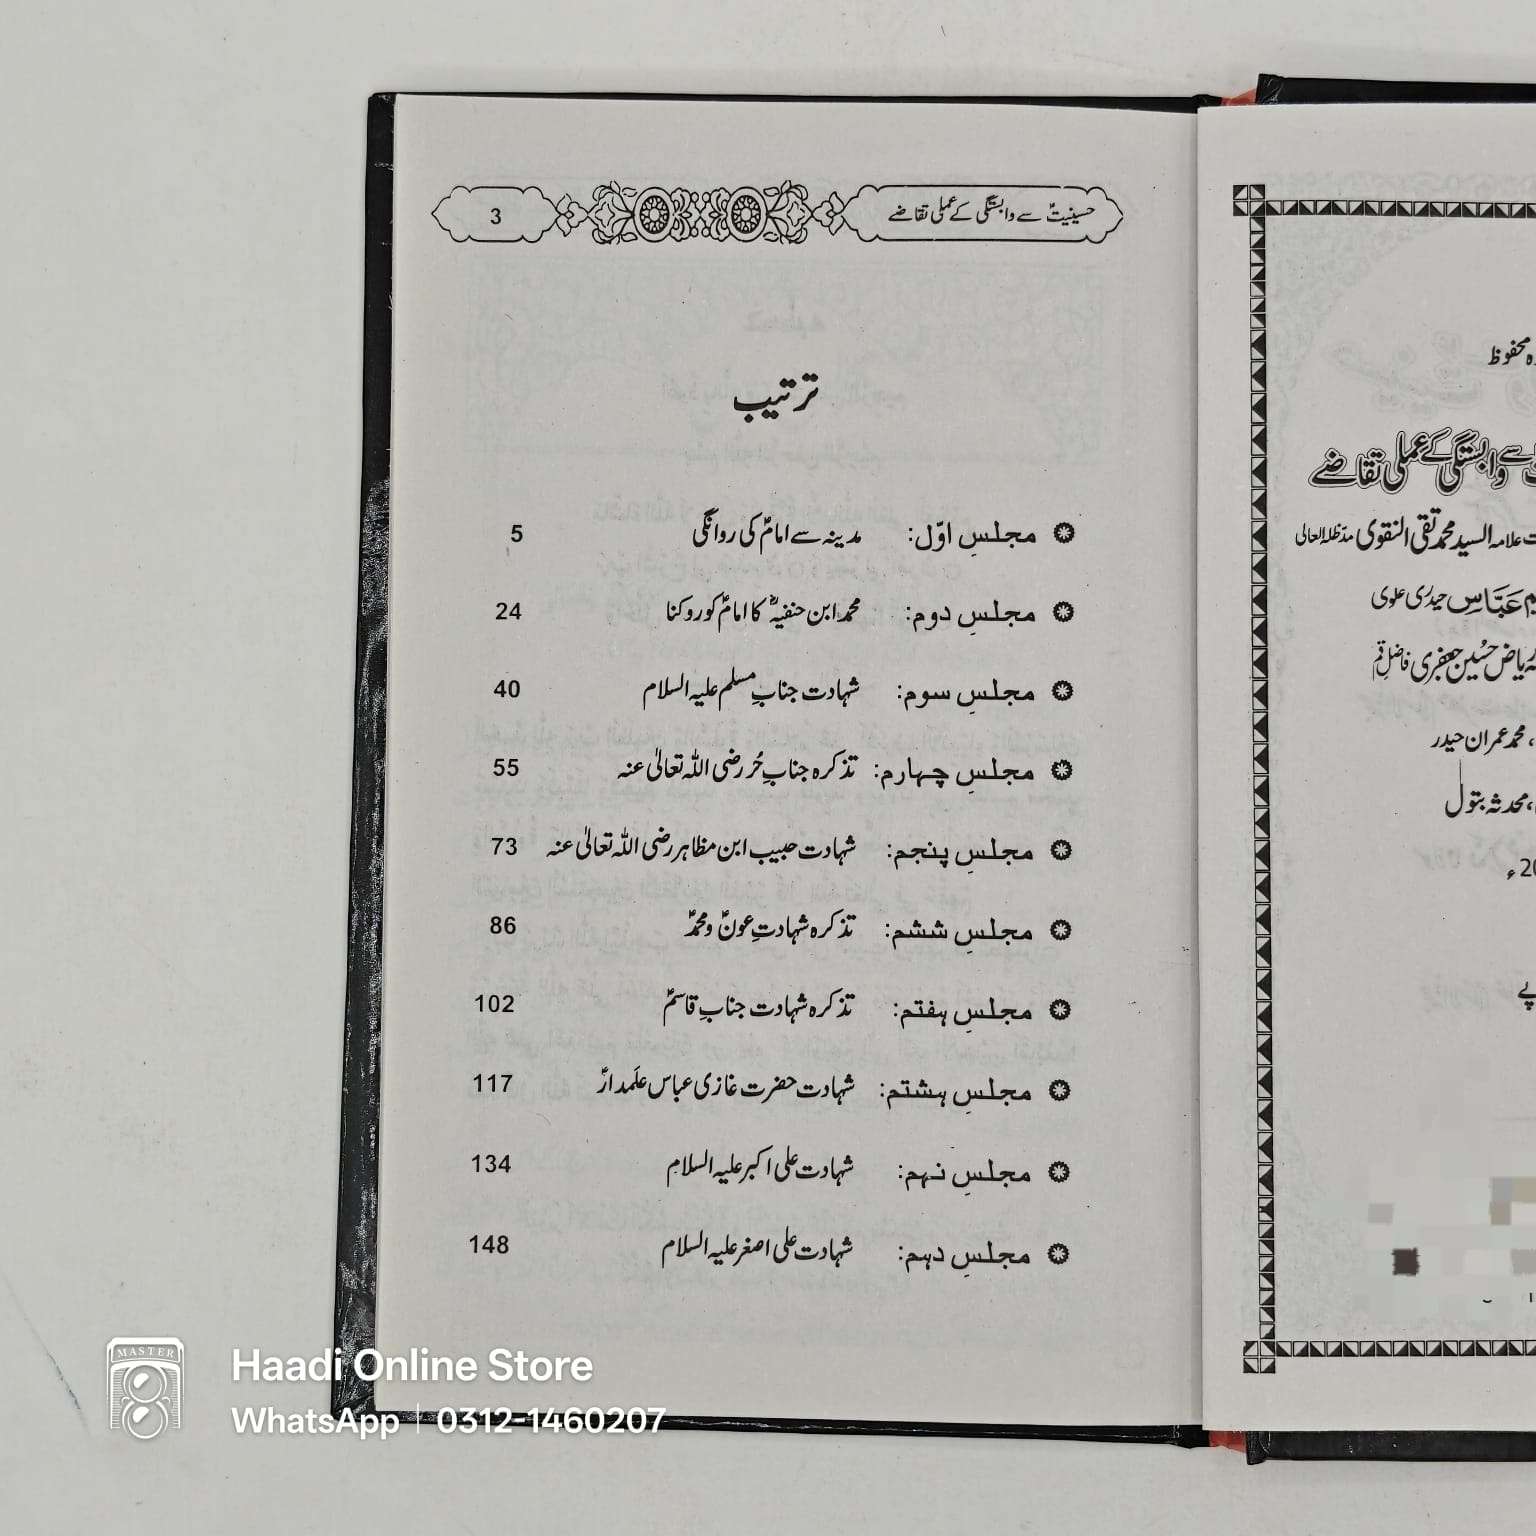 حسینیتؑ سے وابستگی کے عملی تقاضے
3
ترتیب
مجلسِ اوّل: مدینہ سے امامؑ کی روانگی 5
مجلسِ دوم: محمد ابن حنفیہؓ کا امامؑ کو روکنا 24
مجلسِ سوم: شہادت جنابِ مسلم علیہ السلام 40
مجلسِ چہارم: تذکرہ جنابِ حُر رضی اللہ تعالیٰ عنہ 55
مجلسِ پنجم: شہادت حبیب ابن مظاہر رضی اللہ تعالیٰ عنہ 73
مجلسِ ششم: تذکرہ شہادتِ عونؑ و محمدؑ 86
مجلسِ ہفتم: تذکرہ شہادت جنابِ قاسمؑ 102
مجلسِ ہشتم: شہادت حضرت غازی عباس علَمدارؑ 117
مجلسِ نہم: شہادت علی اکبر علیہ السلام 134
مجلسِ دہم: شہادت علی اصغر علیہ السلام 148
محفوظ
سے وابستگی کے عملی تقاضے
علامہ السید محمد تقی النقوی مدظلہ العالی
عَبّاس حیدری علوی
ریاض حُسین جعفری فاضلِ قم
، محمد عمران حیدر
، محدثہ بتول
MASTER
Haadi Online Store
WhatsApp | 0312-1460207